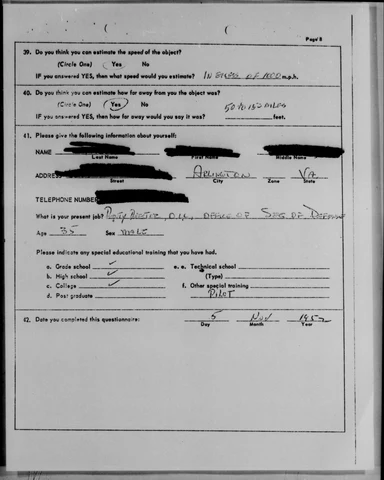 Page 8
39. Do you think you can estimate the speed of the object?
(Circle One) Yes No
IF you answered YES, then what speed would you estimate? IN EXCESS OF 1000 m.p.h.
40. Do you think you can estimate how far away from you the object was?
(Circle One) Yes No
IF you answered YES, then how far away would you say it was? 50 to 150 MILES feet.
41. Please give the following information about yourself:
NAME
Last Name First Name Middle Name
ADDRESS ARLINGTON VA
Street City Zone State
TELEPHONE NUMBER
What is your present job? OFFICE OF SEC OF DEFENSE
Age 35 Sex MALE
Please indicate any special educational training that you have had.
a. Grade school ✓ e. Technical school
b. High school ✓ (Type)
c. College ✓ f. Other special training
d. Post graduate PILOT
42. Date you completed this questionnaire: 5 Nov 1957
Day Month Year